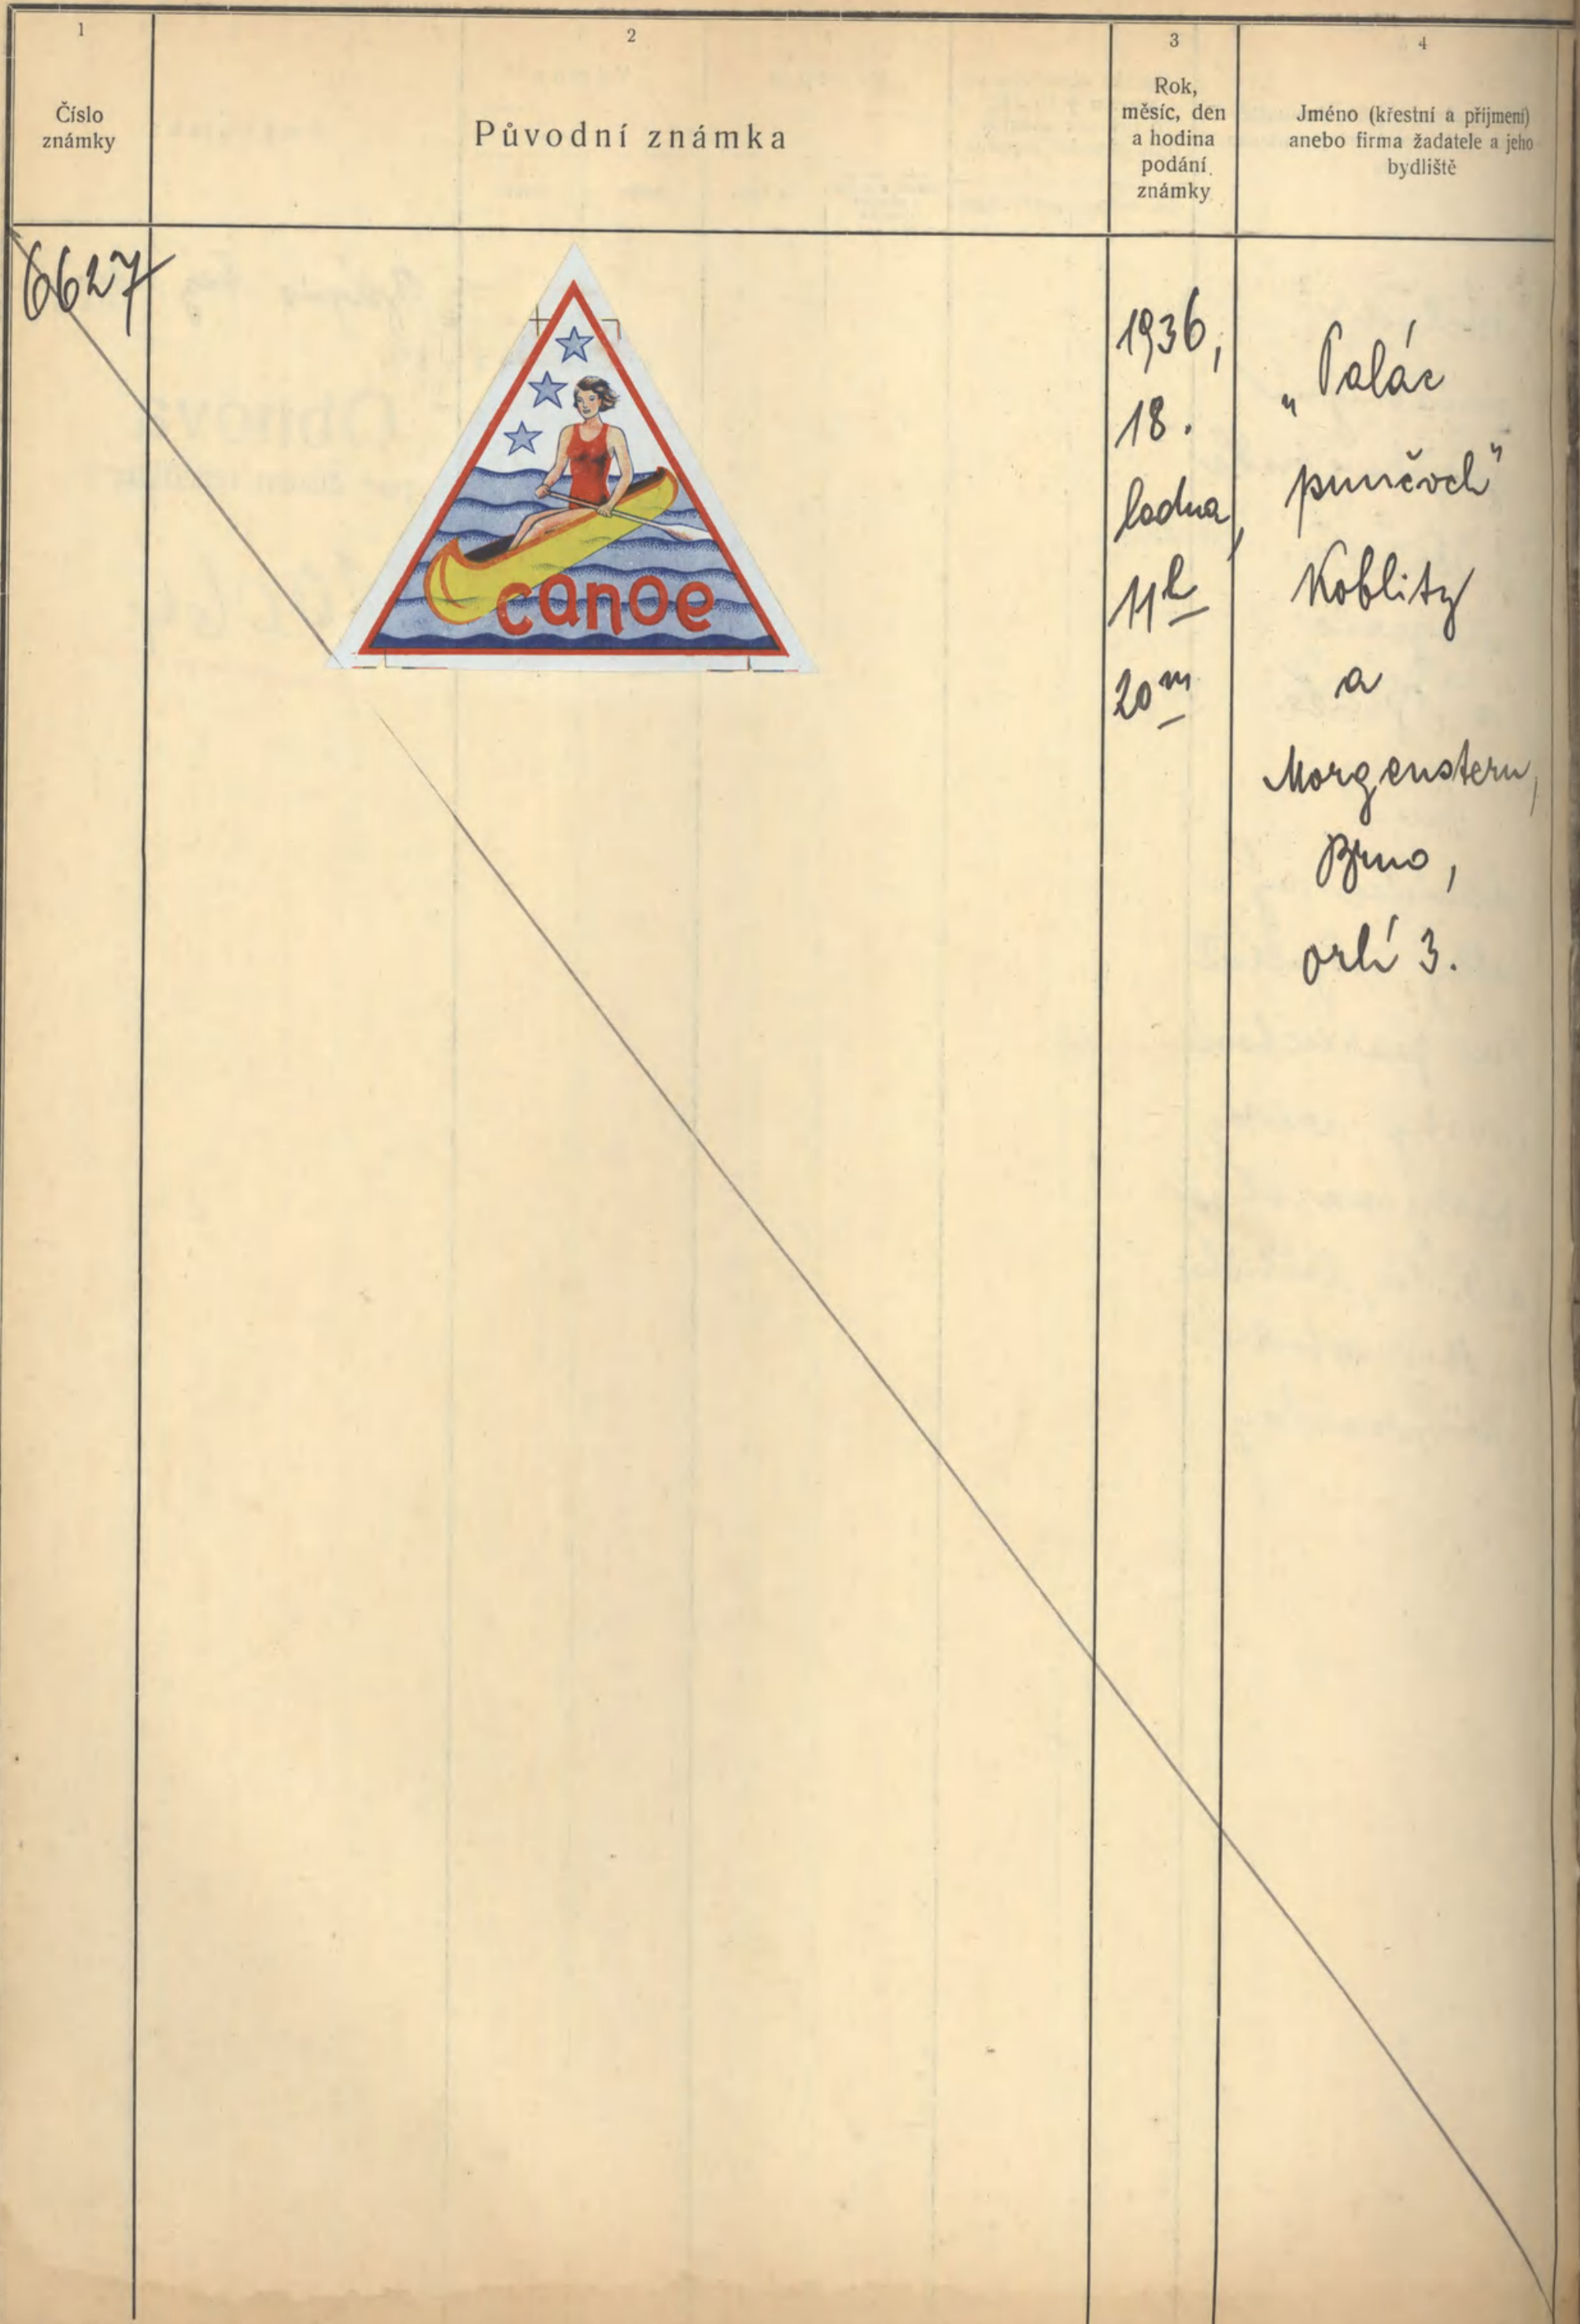 1
Číslo
známky
2
Původní známka
3
Rok,
měsíc, den
a hodina
podání
známky
4
Jméno (křestní a příjmení)
anebo firma žadatele a jeho
bydliště
6627
canoe
1936,
18.
ledna,
11h
20m
„Palác
punčoch"
Koblitz
a
Morgenstern,
Brno,
orlí 3.